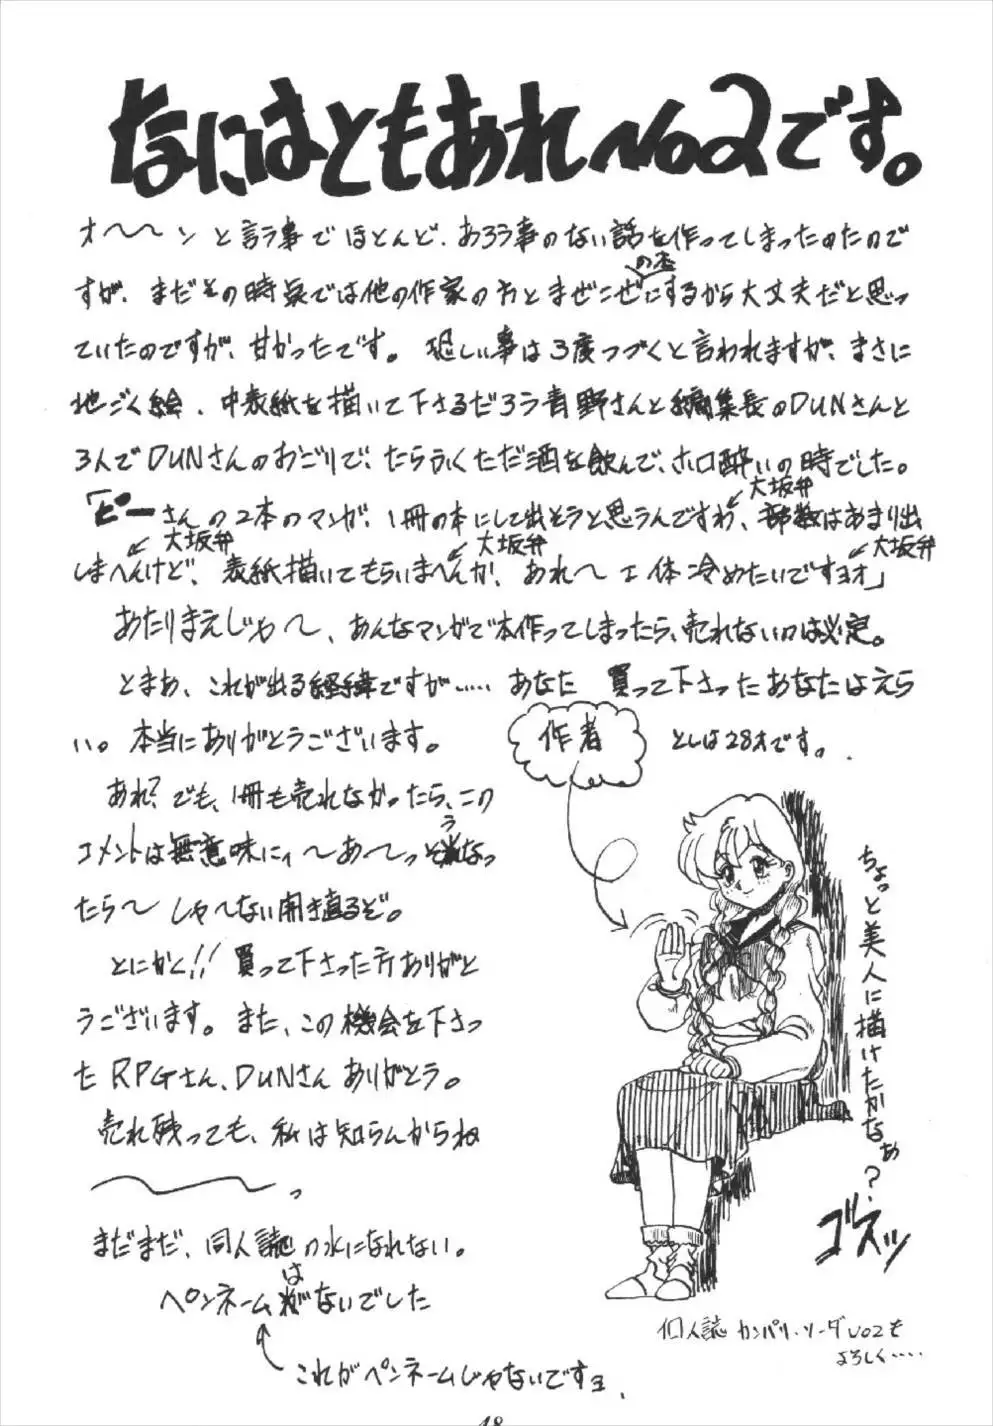 なにはともあれNo2です。
オ〜〜ンと言う事でほとんど、あろう事のない話を作ってしまったのたので
の本
すが、まだその時点では他の作家の方とまぜこぜにするから大丈夫だと思っ
ていたのですが、甘かったです。恐しい事は3度つづくと言われますが、まさに
地ごく絵、中表紙を描いて下さるだろう青野さんと編集長のDUNさんと
3人でDUNさんのおごりで、たらふくただ酒を飲んで、ホロ酔いの時でした。
大坂弁
「ピーさんの2本のマンガ、1冊の本にして出そうと思うんですわ、部数はあまり出
大坂弁 大坂弁 大坂弁
しまへんけど、表紙描いてもらいまへんか、あれ〜 体冷めたいですヨオ」
あたりまえじゃ〜、あんなマンガで本作ってしまったら、売れないのは必定。
とまあ、これが出る経緯ですが……あなた 買って下さったあなたはえら
い。本当にありがとうございます。
作者
としは28才です。
あれ?でも、1冊も売れなかったら、この
コメントは無意味に、〜あ〜っそうなっ
たら〜しゃ〜ない開き直るぞ。
とにかく!!買って下さった方ありがと
うございます。また、この機会を下さっ
たRPGさん、DUNさんありがとう。
売れ残っても、私は知らんからね
〜〜っ
まだまだ、同人誌の水になれない。
は
ペンネームがないでした
これがペンネームじゃないですヨ、
ちょっと美人に描けたかなぁ?
ゴルスッ
個人誌 カンパリ・ソーダVO2も
よろしく‥‥
18